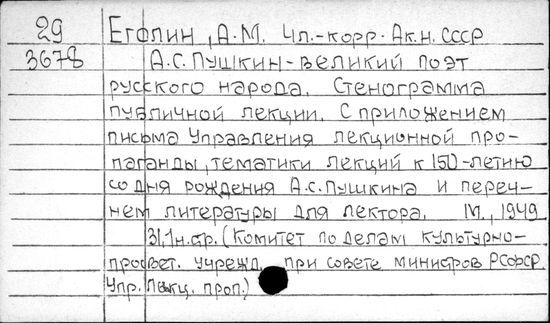 29 Еголин, А.М. Чл.-корр. Ак.н. СССР
3678 А.С. Пушкин-великий поэт
русского народа. Стенограмма
публичной лекции. С приложением
письма Управления лекционной про-
паганды, тематики лекций к 150-летию
со дня рождения А.С. Пушкина и переч-
нем литературы для лектора. М., 1949
31,1н.стр. (Комитет по делам культурно-
просвет. учрежд. при совете министров РСФСР.
Упр. Лекц. проп.)